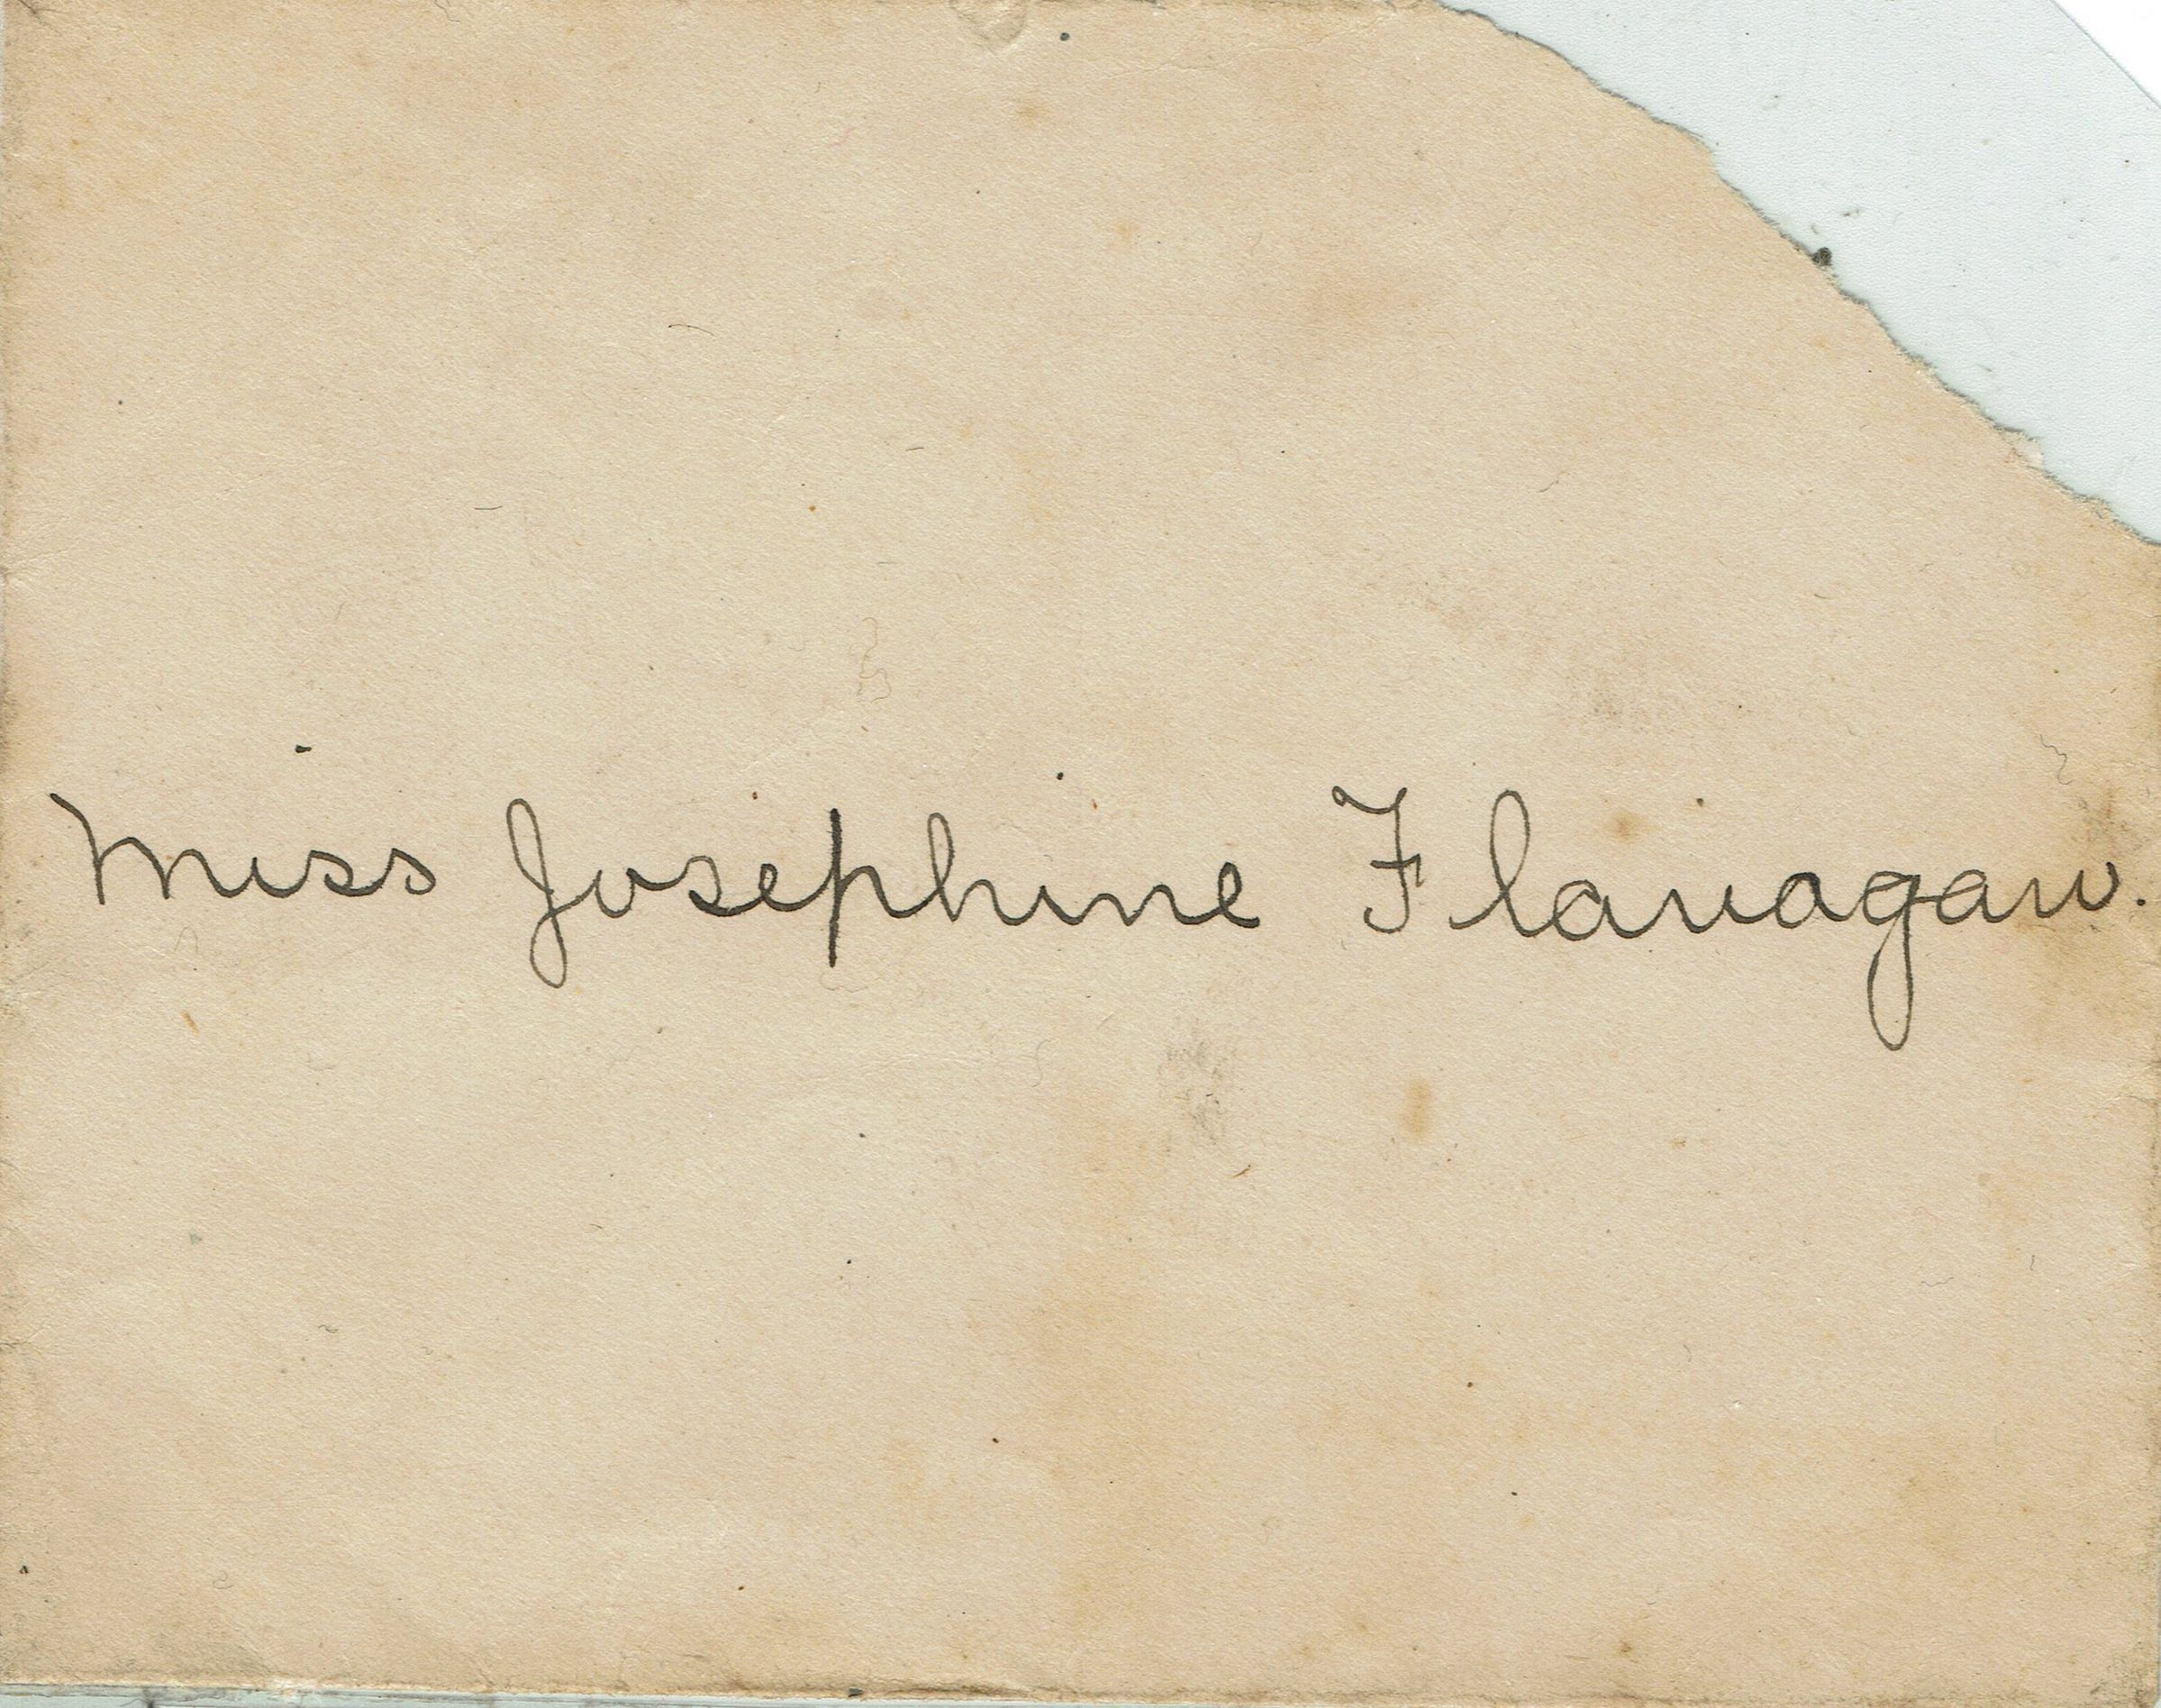 Miss Josephine Flanagan.